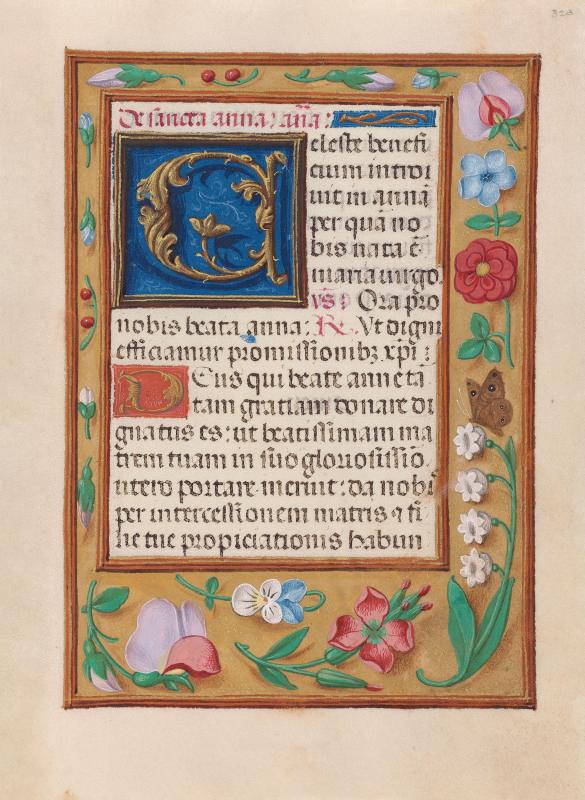 De sancta anna: aña:
Celeste benefi
cium introi
uit in annã
per quã no
bis nata ẽ
maria uirgo.
vs̃: Ora pro
nobis beata anna: R. Vt digni
efficiamur promissionibꝫ xp̃i:
Deus qui beate anne tã
tam gratiam donare di
gnatus es: ut beatissimam ma
trem tuam in suo gloriosissio̅
utero portare meruit: da nobis
per intercessionem matris ⁊ fi
lie tue propiciationis habun